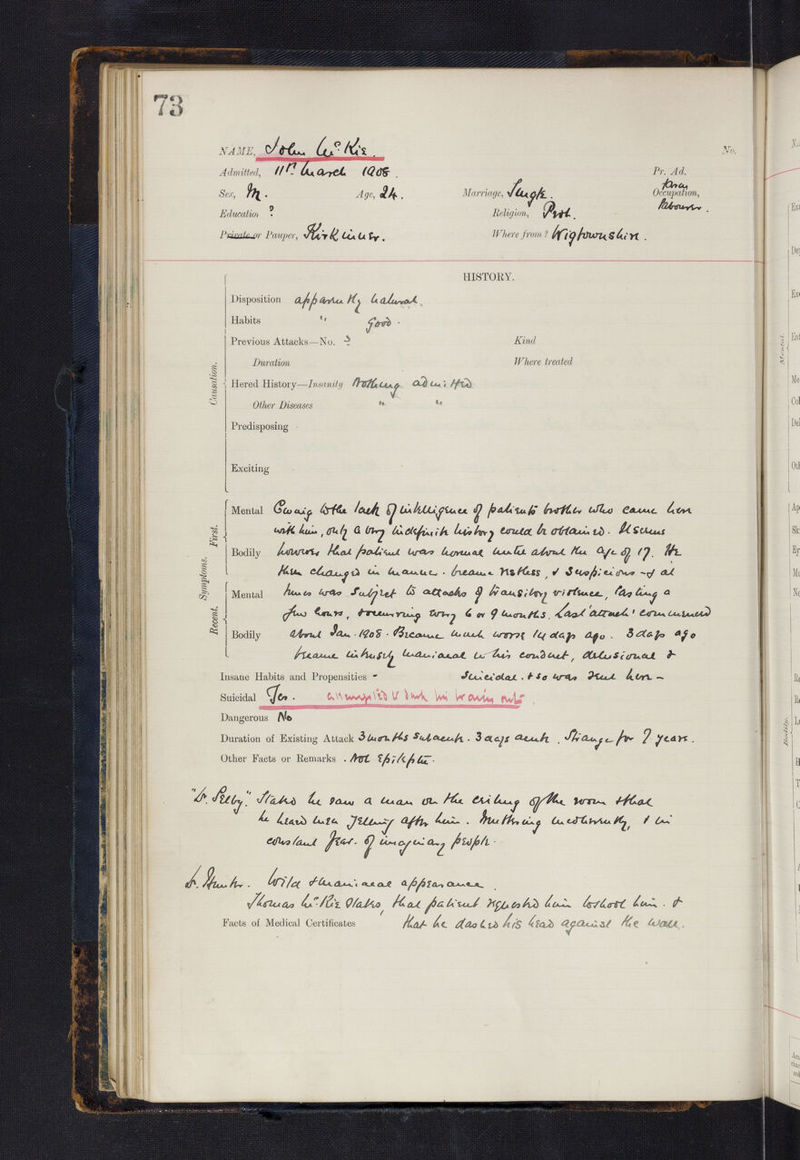 73
NAME, John McKie.
No.
Admitted, 11th March 1908.
Pr. Ad.
Sex, M. Age, 24. Marriage, Single. Occupation, Farm
Labourer.
Education ? Religion, Prot.
Private or Pauper, Kirkinner. Where from? Wigtownshire.
HISTORY.
Disposition apparently natural.
Habits " good.
Previous Attacks—No. ? Kind
Duration Where treated
Hered History—Insanity Nothing admitted
Other Diseases " "
Predisposing
Exciting
Causation.
Mental Owing to the lack of intelligence of patient's brother who came here
with him, only a very indefinite history could be obtained. It seems
Bodily however that patient was normal until about the age of 17. He
then changed in manner. became restless, & suspicious & at
Mental times was subject to attacks of transitory violence, lasting a
few hours, & recurring every 6 or 9 months. Last attack commenced
Bodily about Jan. 1908. Became much worse 14 days ago. 3 days ago
became intensely maniacal in his conduct, delusional &
First.
Recent.
Symptoms.
Insane Habits and Propensities - Suicidal. & so was sent here -
Suicidal Yes. attempted to dash his brains out
Dangerous No
Duration of Existing Attack 3 months subacute. 3 days acute. Strange for 7 years.
Other Facts or Remarks. Not Epileptic.
"Dr. Selby." States he saw a man on the ceiling of the room & that
he heard men yelling after him. Muttering incoherently, & in
constant fear of imaginary people.
Dr. Hunter. Wild & maniacal appearance.
Thomas McKie states, that patient requested him to shoot him. &
Facts of Medical Certificates that he dashed his head against the wall.